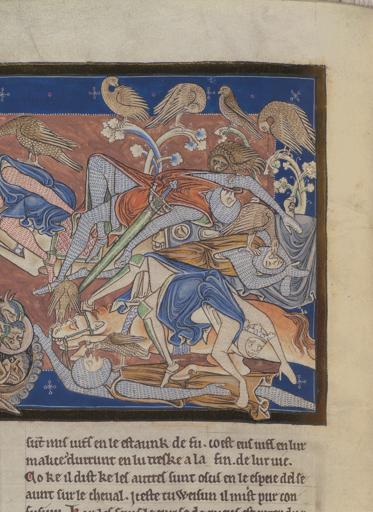 sunt mis uifs en le estaunk de fu. co est ens uifs en lur
malice durrunt en lu treske a la fin. de lur uie.
Co ke il dist ke les autres sunt ocis en le espeie del se
aunt sur le cheual. jceste tuweisun il mist pur con